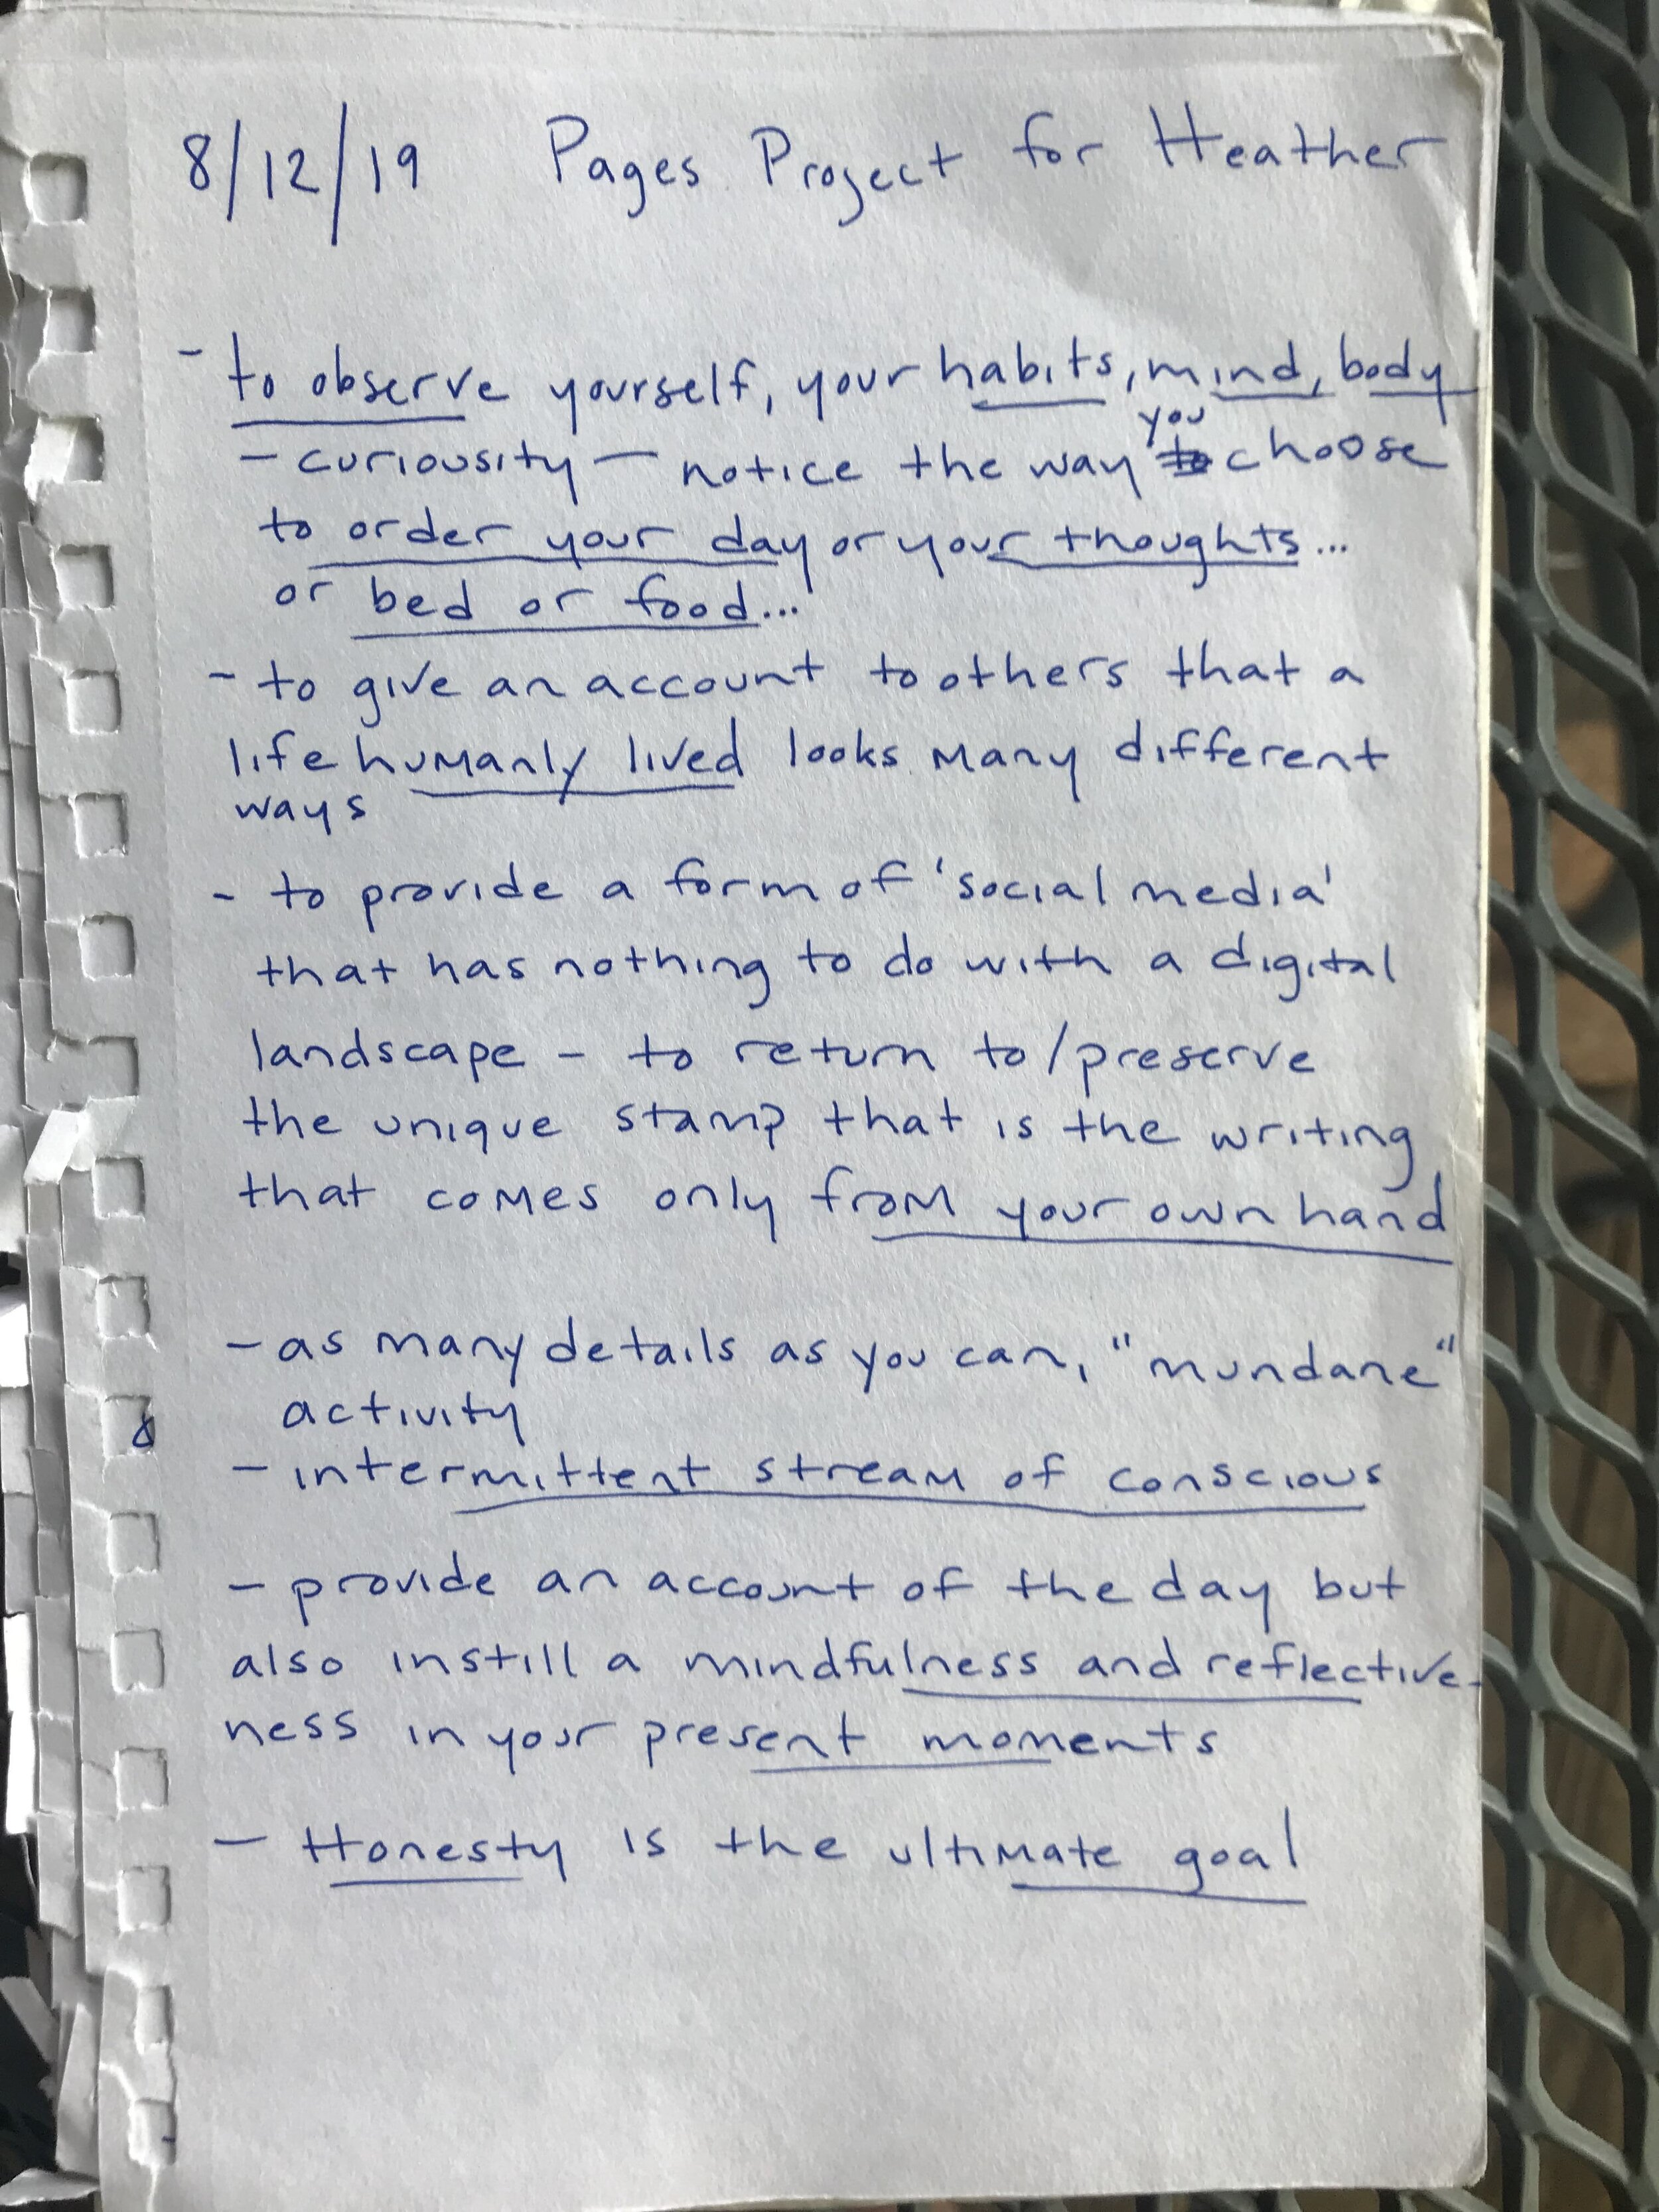 8/12/19 Pages Project for Heather
- to observe yourself, your habits, mind, body
- curiousity - notice the way you choose
to order your day or your thoughts...
or bed or food...
- to give an account to others that a
life humanly lived looks many different
ways
- to provide a form of 'social media'
that has nothing to do with a digital
landscape - to return to/preserve
the unique stamp that is the writing
that comes only from your own hand
- as many details as you can, "mundane"
activity
- intermittent stream of conscious
- provide an account of the day but
also instill a mindfulness and reflective-
ness in your present moments
- Honesty is the ultimate goal